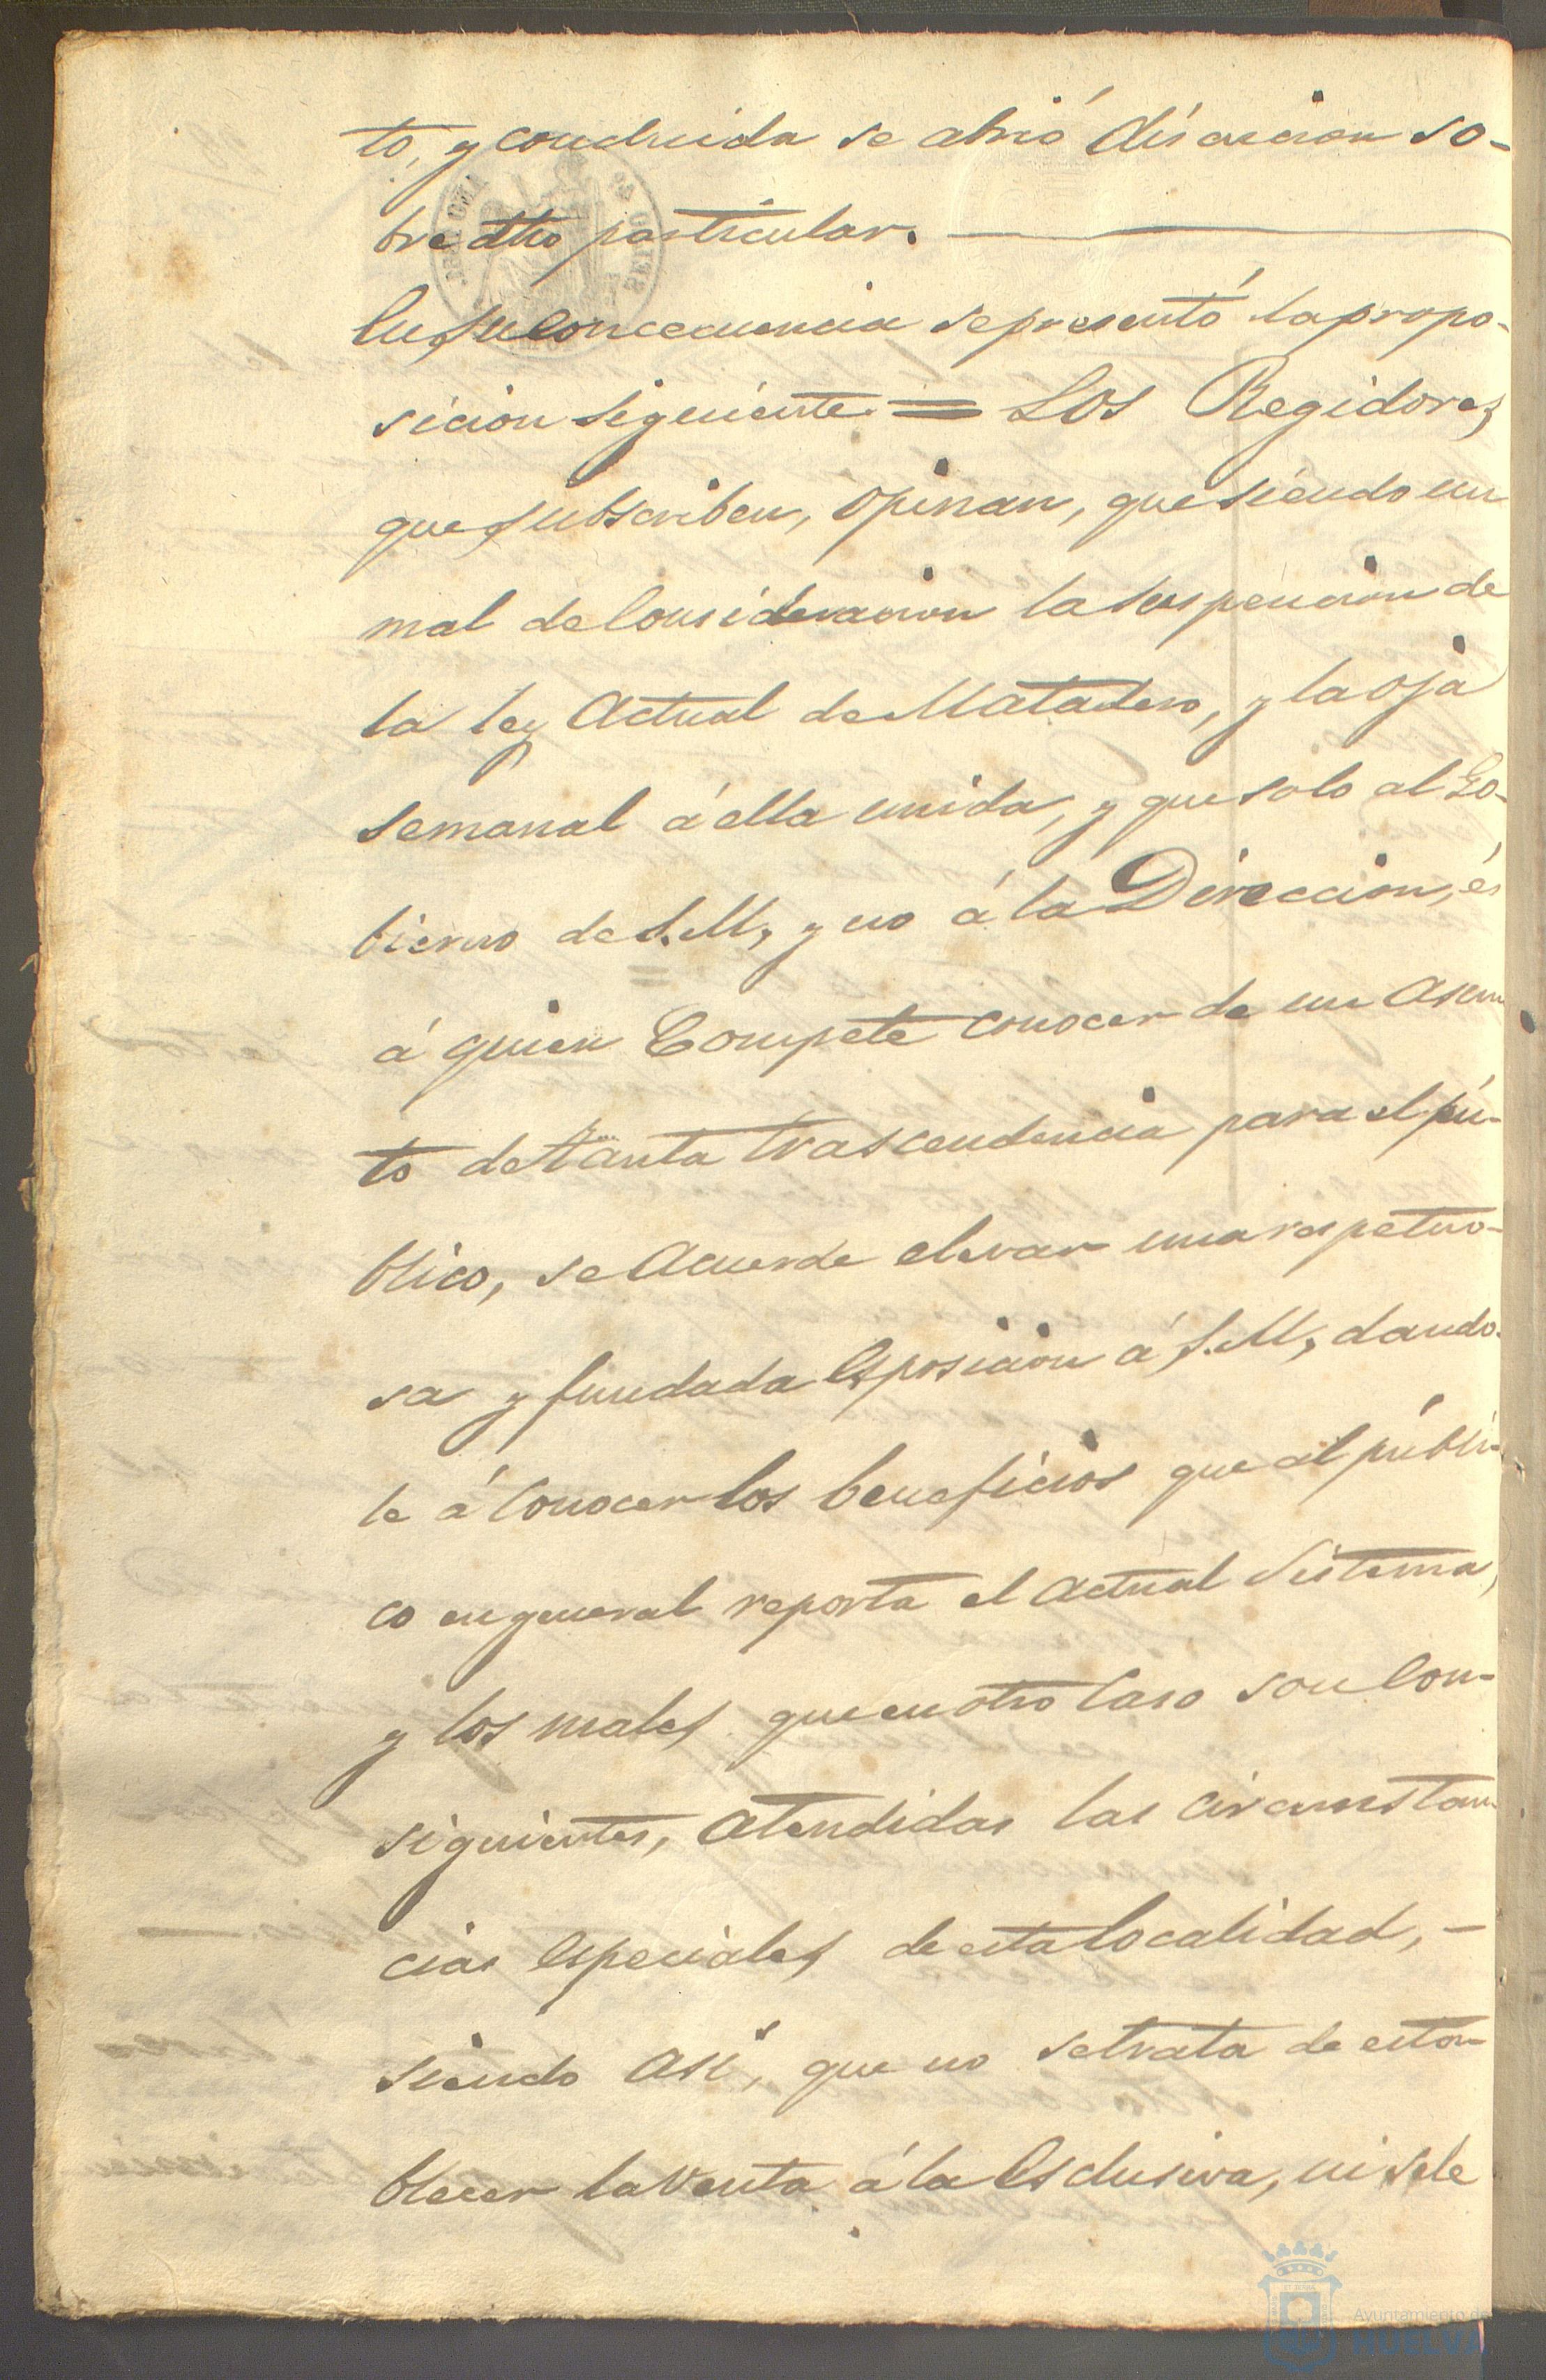 to, y concluida se abrió discucion so-
bre dho particular.
En su concecuencia se presentó la propo-
sicion siguiente = Los Regidores
que subscriben, opinan, que siendo un
mal de consideracion la suspencion de
la ley actual de Matadero, y la oja
semanal á ella unida, y que solo al Go-
bierno de S.M, y no á la Direccion, és
á quien Compete conocer de un asun
to de tanta trascendencia para el pú-
blico, se acuerde elevar una respetuo-
sa y fundada esposicion á S.M, dando-
le á conocer los beneficios que al públi-
co en general reporta el actual sistema,
y los males que en otro caso son con-
siguientes, atendidas las circunstan-
cias especiales de esta localidad, -
siendo asi, que no se trata de esta-
blecer la venta á la esclusiva, ni se le
Ayuntamiento de
HUELVA